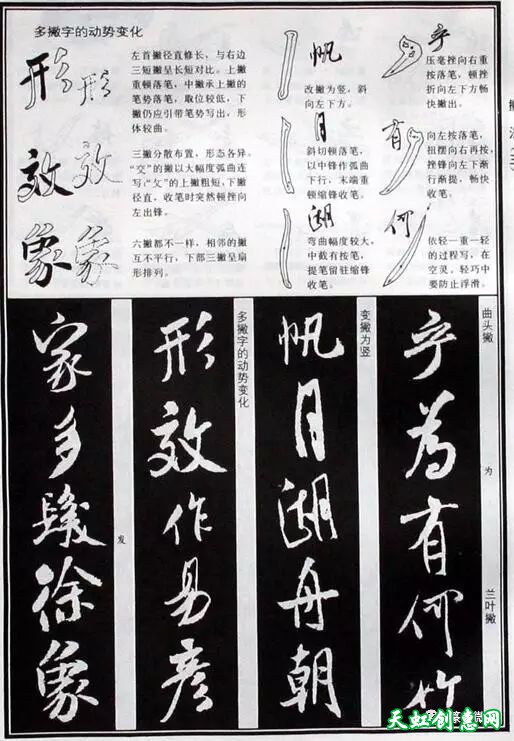 多撇字的动势变化
形形
左首撇径直修长，与右边
三短撇呈长短对比。上撇
重顿落笔，中撇承上撇的
笔势落笔，取位较低，下
撇仍应引带笔势写出，形
体较曲。
效效
三撇分散布置，形态各异。
“交”的撇以大幅度弧曲连
写；“攵”的上撇粗短，下撇
径直，收笔时突然顿挫向
左出锋。
象象
六撇都不一样，相邻的撇
互不平行，下部三撇呈扇
形排列。
帆
改撇为竖，斜
向左下方。
月
斜切顿落笔，
以中锋作弧曲
下行，末端重
顿缩锋收笔。
湖
弯曲幅度较大，
中截有按笔，
提笔留驻缩锋
收笔。
乎
压毫挫向右重
按落笔，顿挫
折向左下方畅
快撇出。
有
向左按落笔，
扭摆向右再按，
挫锋向左下渐
行渐提，畅快
收笔。
何
依轻一重一轻
的过程写，在
空灵、轻巧中
要防止浮滑。
曲头撇
为
兰叶撇
乎为有何竹
变撇为竖
帆月湖舟朝
多撇字的动势变化
形效作易彦
发
家多发徐象
天虹创意网